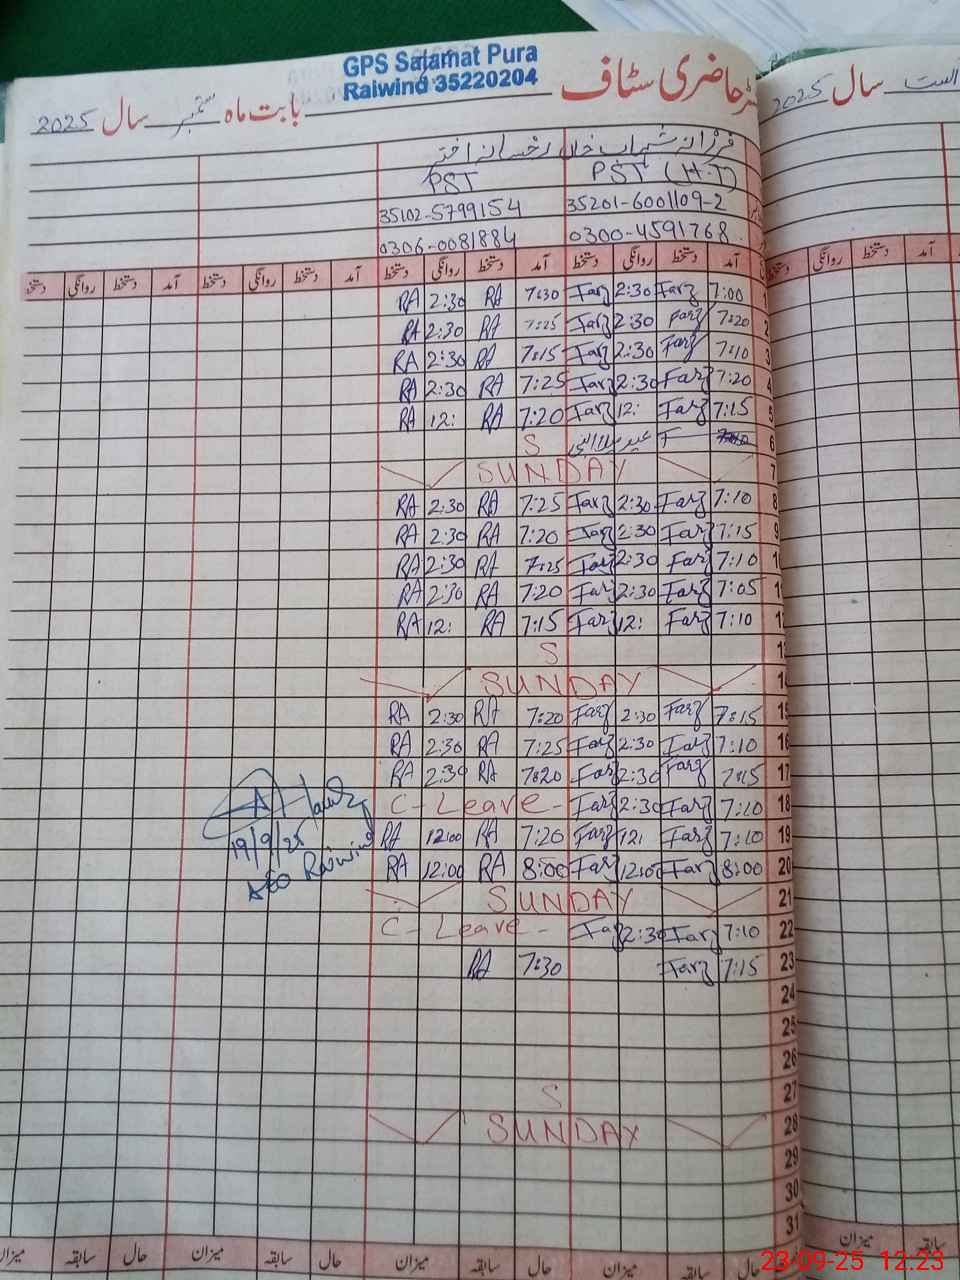 GPS Salamat Pura
Raiwind 35220204
رجسٹر حاضری سٹاف بابت ماہ ستمبر سال 2025
سال 2025
فرزانہ شہاب خان رخسانہ اختر
PST (H.T) PST
35201-6001109-2 35102-5799154
0300-4591768 0306-0081884
آمد دستخط روانگی دستخط آمد دستخط روانگی دستخط آمد دستخط روانگی دستخط آمد دستخط روانگی دستخط
1 7:00 Farz 2:30 Farz 7:30 RA 2:30 RA
2 7:20 Farz 2:30 Farz 7:25 RA 2:30 RA
3 7:10 Farz 2:30 Farz 7:15 RA 2:30 RA
4 7:20 Farz 2:30 Farz 7:25 RA 2:30 RA
5 7:15 Farz 12: Farz 7:20 RA 12: RA
6 عید میلاد النبی S
7 SUNDAY
8 7:10 Farz 2:30 Farz 7:25 RA 2:30 RA
9 7:15 Farz 2:30 Farz 7:20 RA 2:30 RA
10 7:10 Farz 2:30 Farz 7:25 RA 2:30 RA
11 7:05 Farz 2:30 Farz 7:20 RA 2:30 RA
12 7:10 Farz 12: Farz 7:15 RA 12: RA
13 S
14 SUNDAY
15 7:15 Farz 2:30 Farz 7:20 RA 2:30 RA
16 7:10 Farz 2:30 Farz 7:25 RA 2:30 RA
17 7:15 Farz 2:30 Farz 7:20 RA 2:30 RA
18 7:10 Farz 2:30 Farz C-Leave-
19 7:10 Farz 12: Farz 7:20 RA 12:00 RA
20 8:00 Farz 12:00 Farz 8:00 RA 12:00 RA
19/9/25
AEO Raiwind
21 SUNDAY
22 7:10 Farz 2:30 Farz C-Leave-
23 7:15 Farz 7:30 RA
24
25
26
27 S
28 SUNDAY
29
30
31
حال سابقہ میزان حال سابقہ میزان حال سابقہ میزان
سابقہ میزان
23-09-25 12:23